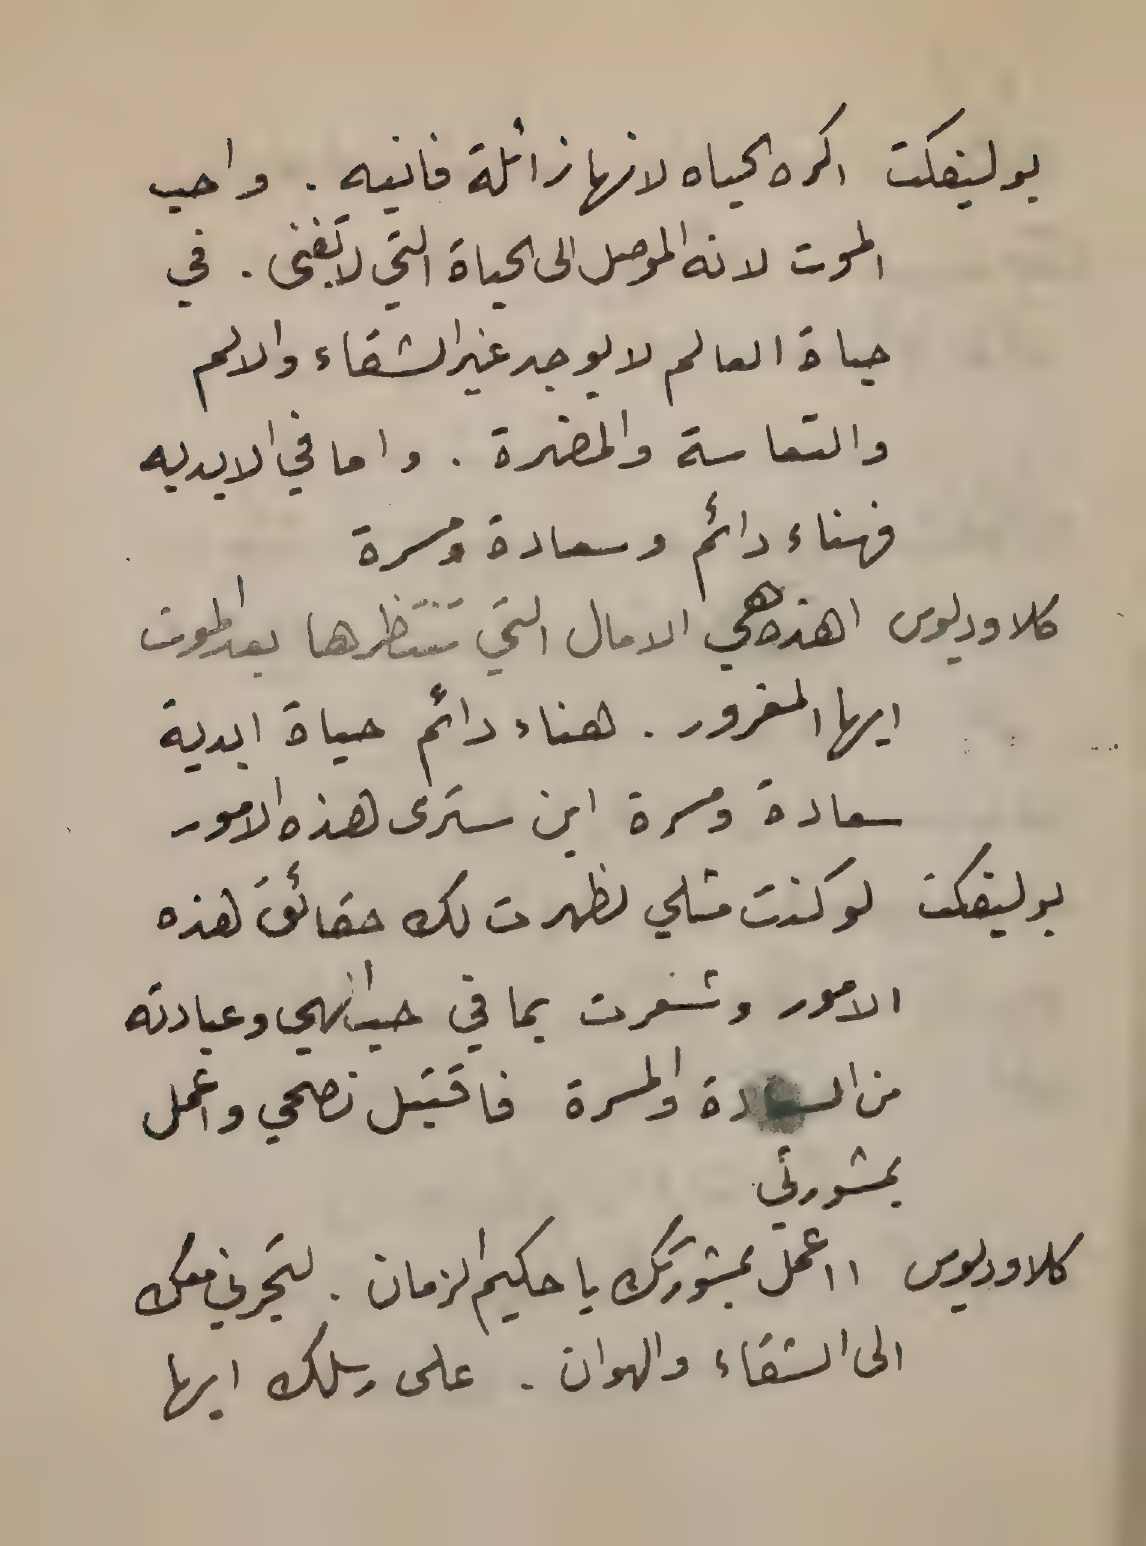 بوليفكت اكره الحياه لانها زائلة فانيه . واحب
الموت لانه الموصل الى الحياة التي لا تفنى . في
حياة العالم لا يوجد غير الشقاء والالم
والتعاسة والمضرة . واما في الابديه
فهناء دائم وسعادة ومسرة
كلاوديوس اهذه هي الامال التي تنتظرها بعد الموت
ايها المغرور . هناء دائم حياة ابدية
سعادة ومسرة اين سترى هذه الامور
بوليفكت لو كنت مثلي لظهرت لك حقائق هذه
الامور وشعرت بما في حب الهي وعبادته
من السعادة والمسرة فاقتبل نصحي واعمل
بمشورتي
كلاوديوس ااعمل بمشورتك يا حكيم الزمان . لتجرني معك
الى الشقاء والهوان . على رسلك ايها